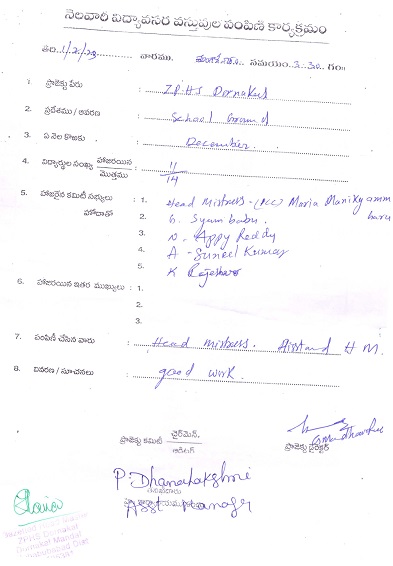 నెలవారీ విద్యావసర వస్తువుల పంపిణీ కార్యక్రమం
తేది. వారము. మంగళ. సమయం. 3-30. గం॥
1. ప్రాజెక్టు పేరు : ZPHS Dornakal
2. ప్రదేశము / ఆవరణ : School Ground
3. ఏ నెల కొఱకు : December
4. విద్యార్థుల సంఖ్య హాజరయిన / మొత్తము : 11/14
5. హాజరైన కమిటీ సభ్యులు హోదాతో : 1. Head Mistress - Maria Manikyamm
baru
2. G. Syam babu.
3. N. Appy Reddy
4. A - Suneel Kumar
5. K Rajeshwar
6. హాజరయిన ఇతర ముఖ్యులు : 1.
2.
3.
7. పంపిణీ చేసిన వారు : Head mistress. H M.
8. వివరణ / సూచనలు : good work.
ప్రాజెక్టు కమిటీ ఛైర్మెన్. / ఆడిటర్
ప్రాజెక్టు డైరెక్టర్
P. Dhanalakshmi
Asst Manager
ZPHS Dornakal
Dornakal Mandal